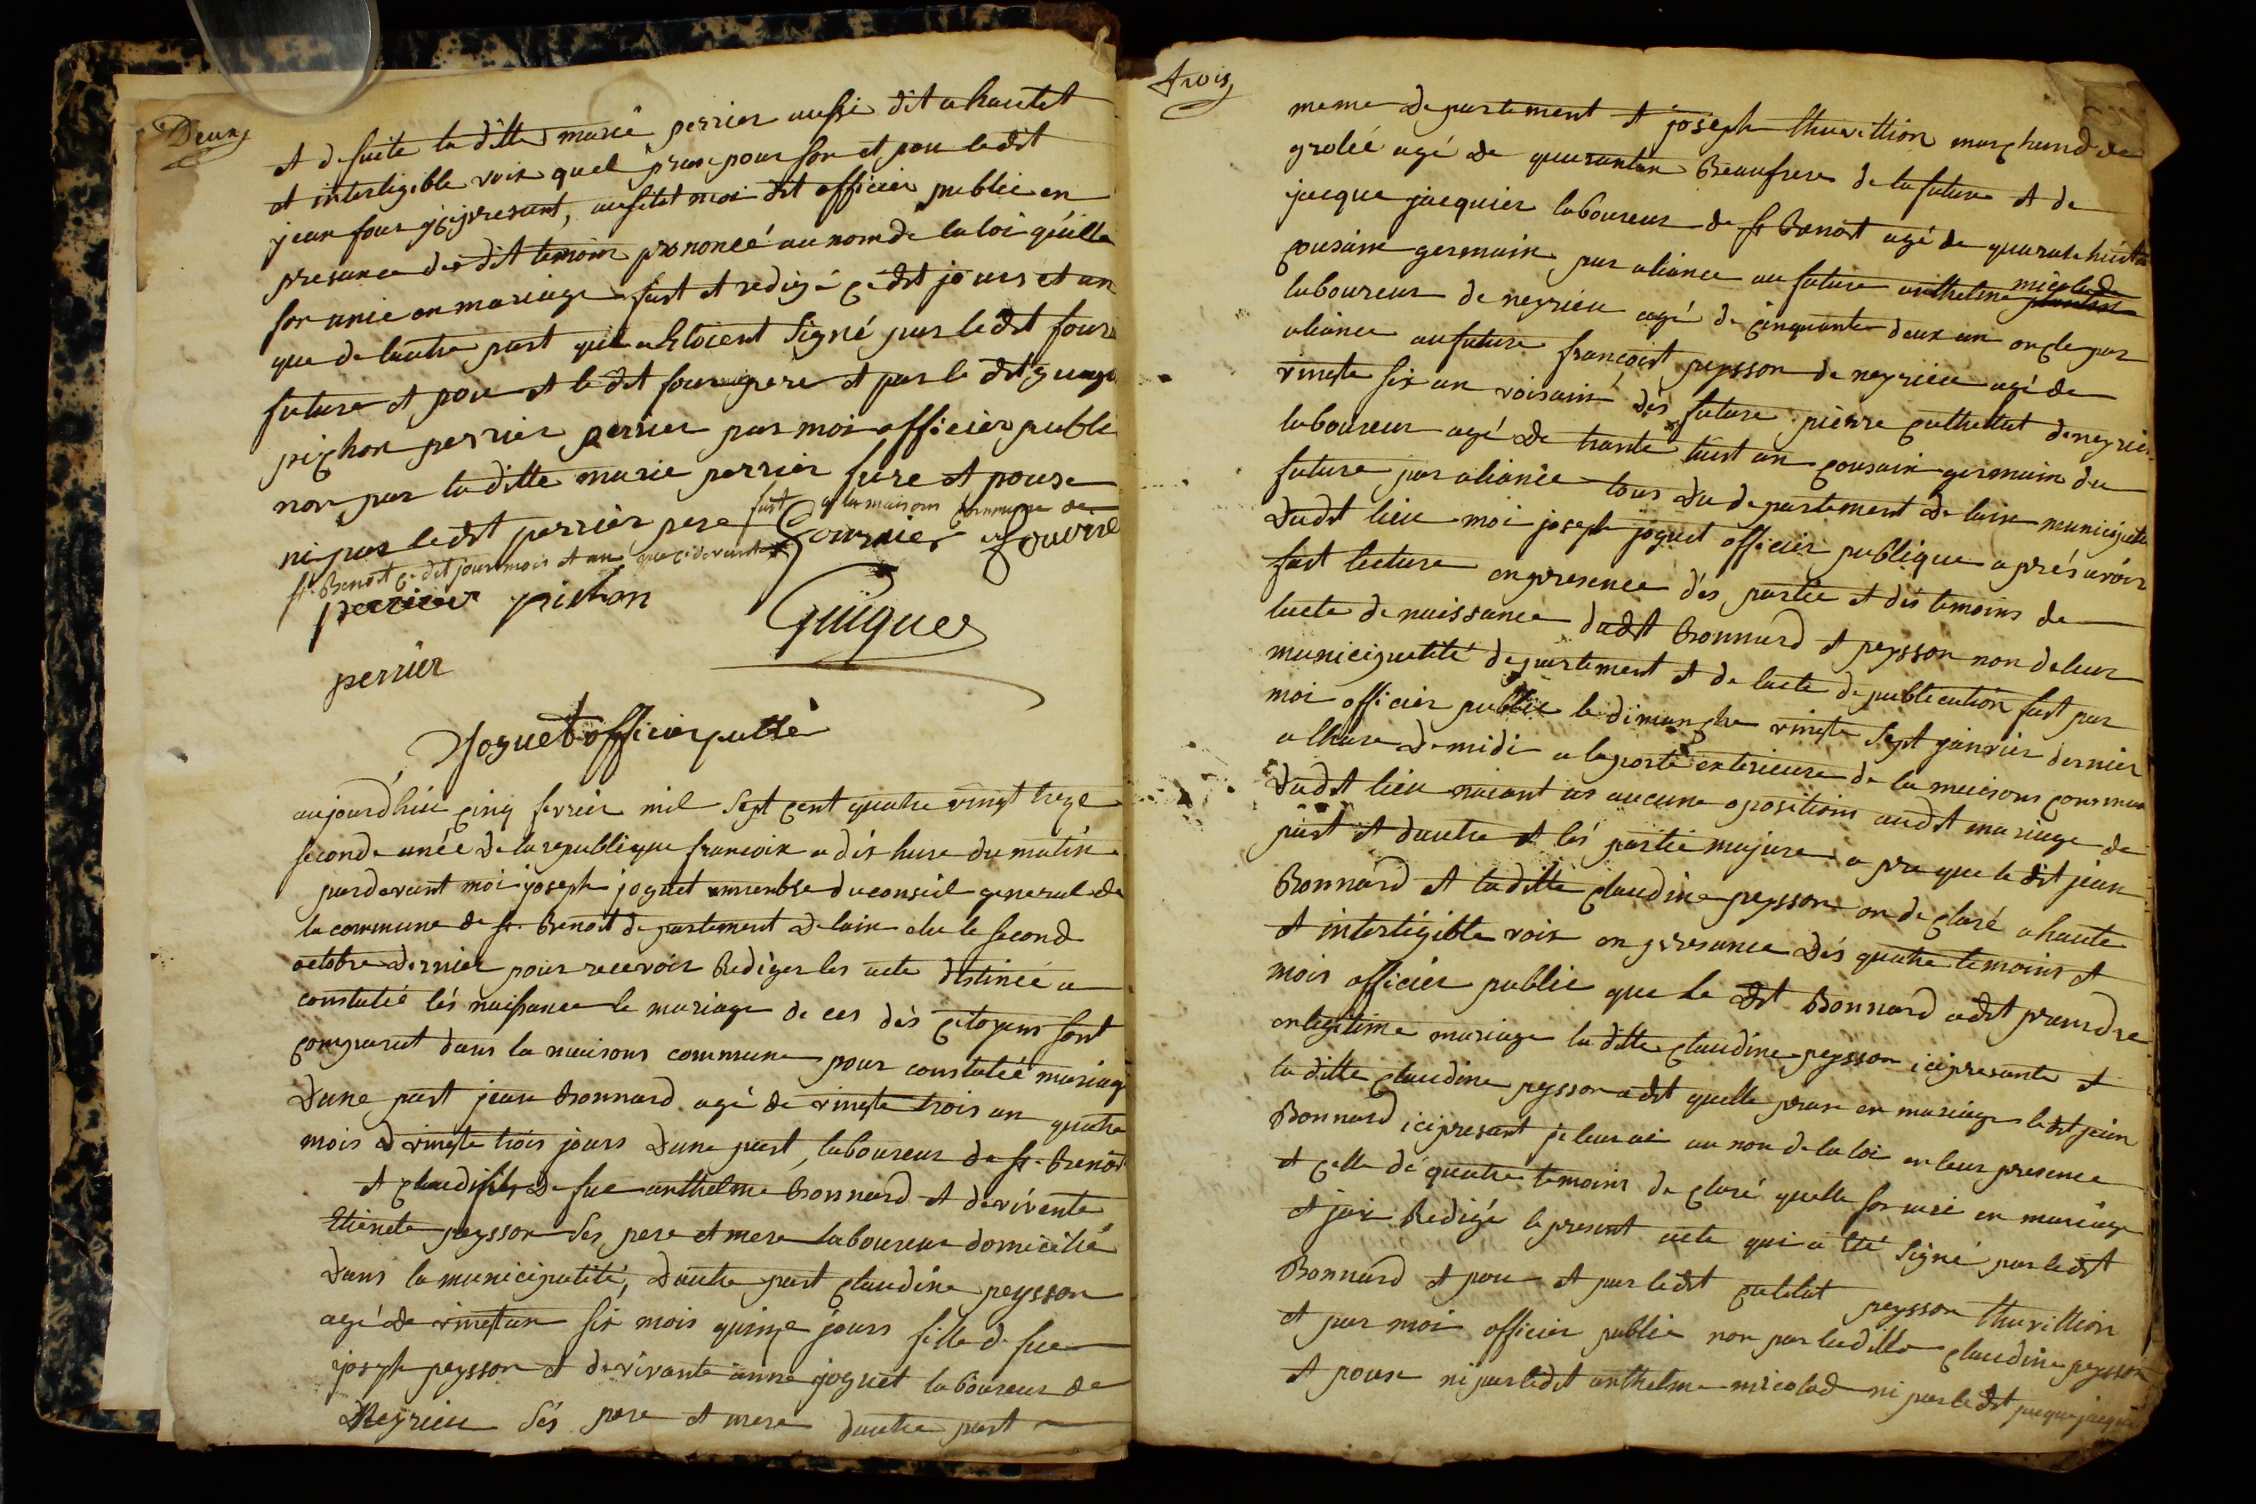 Deux
et de suite la ditte marie perrier aussi dit a hautet
et intertigible voix quel prase pour son et pou ledit
jean four yci present, aussitot moi dit officier public en
presance des dit temoins prononcé au nom de la loi quille
son unie en mariage fast et redigé ce dit jours et an
que de lautre part qui a Etoient Signé par le dit four
future et pou et le dit four pere et par le dit guigue
pichon perrier perrier par moi officier public
non par la ditte marie perrier fure et pouse
ni par ledit perrier pere fast a la maisons commune de
st. Benoit ce dit jour mois et an que cidevant
Fournier fournie
perrier pichon
Guigues
perrier
Joguet officier public
aujourdhui cinq fevrier mil Sept cent quatre vingt treze
seconde anée de la republique francoix a dix hure du matin
pardevant moi joseph joguet menbre du conseil general de
la commune de st. Benoit departement de lain elu le second
octobre dernier pour recevoir Rediger les acte destinée a
constatée lés naissance le mariage de ces dés citoyens sont
comparut dans la maisons commune pour constatée mariage
Dune part jean Bonnard agé de vingte trois an quatre
mois et vingte trois jours Dune part, laboureur de st. Benoit
et fils de fue anthelme Bonnard et de vivente
Etienete peysson Ses pere et mere laboureur domicilié
Dans la municipalité, Dautre part claudine peysson
agé de vingt un six mois quinze jours fille de fue
joseph peysson et de vivante anne joguet laboureur de
Neyrieu Sés pere et mere dautre part
trois
meme departement et joseph thuvillion marchand de
grolée agé de quarantan Beaufrere de la future et de
jacque jacquier laboureur de st Benoit agé de quarante huit an
cousain germain par aliance au future anthelme micolad
laboureur de neyrieu agé de cinquante deux an oncle par
aliance au future françoist peysson de neyrieu agé de
vingte six an voisain dés future pierre cathellat de neyrieu
laboureur agé de trante huit an cousain germain du
future par aliance tous du departement de lain municipalité
Dudit lieu moi joseph joguet officier publique aprés avoir
fast lecture en presence dés partie et dés temoins de
lacte de naissance dudit Bonnard et peysson non de leur
municipalité departement et de lacte de publication fast par
moi officier public le dimanche vingte Sept janvier dernier
a lhure de midi a la porte exterieure de la maisons commune
dudit lieu naiant us aucune oposition audit mariage de
part et dautre et lés partie majure a pre que le dit jean
Bonnard et la ditte claudine peysson on declaré a haute
et intertégible voix en presance dés quatre temoins et
mois officier public que le dit Bonnard a dit prandre
en legitime mariage la ditte claudine peysson ici presante et
la ditte claudine peysson a dit quelle pran en mariage ledit jean
Bonnard ici present je leur ai au non de la loi en leur presence
et celle dé quatre temoins declaré quelle son uni en mariage
et jai Redigé le present acte qui a Eté signé par ledit
Bonnard et pou et par ledit catelat peysson thuvillion
et par moi officier public non par laditte claudine peysson
et pouse ni par ledit anthelme micolad ni par le dit jacque jacquié